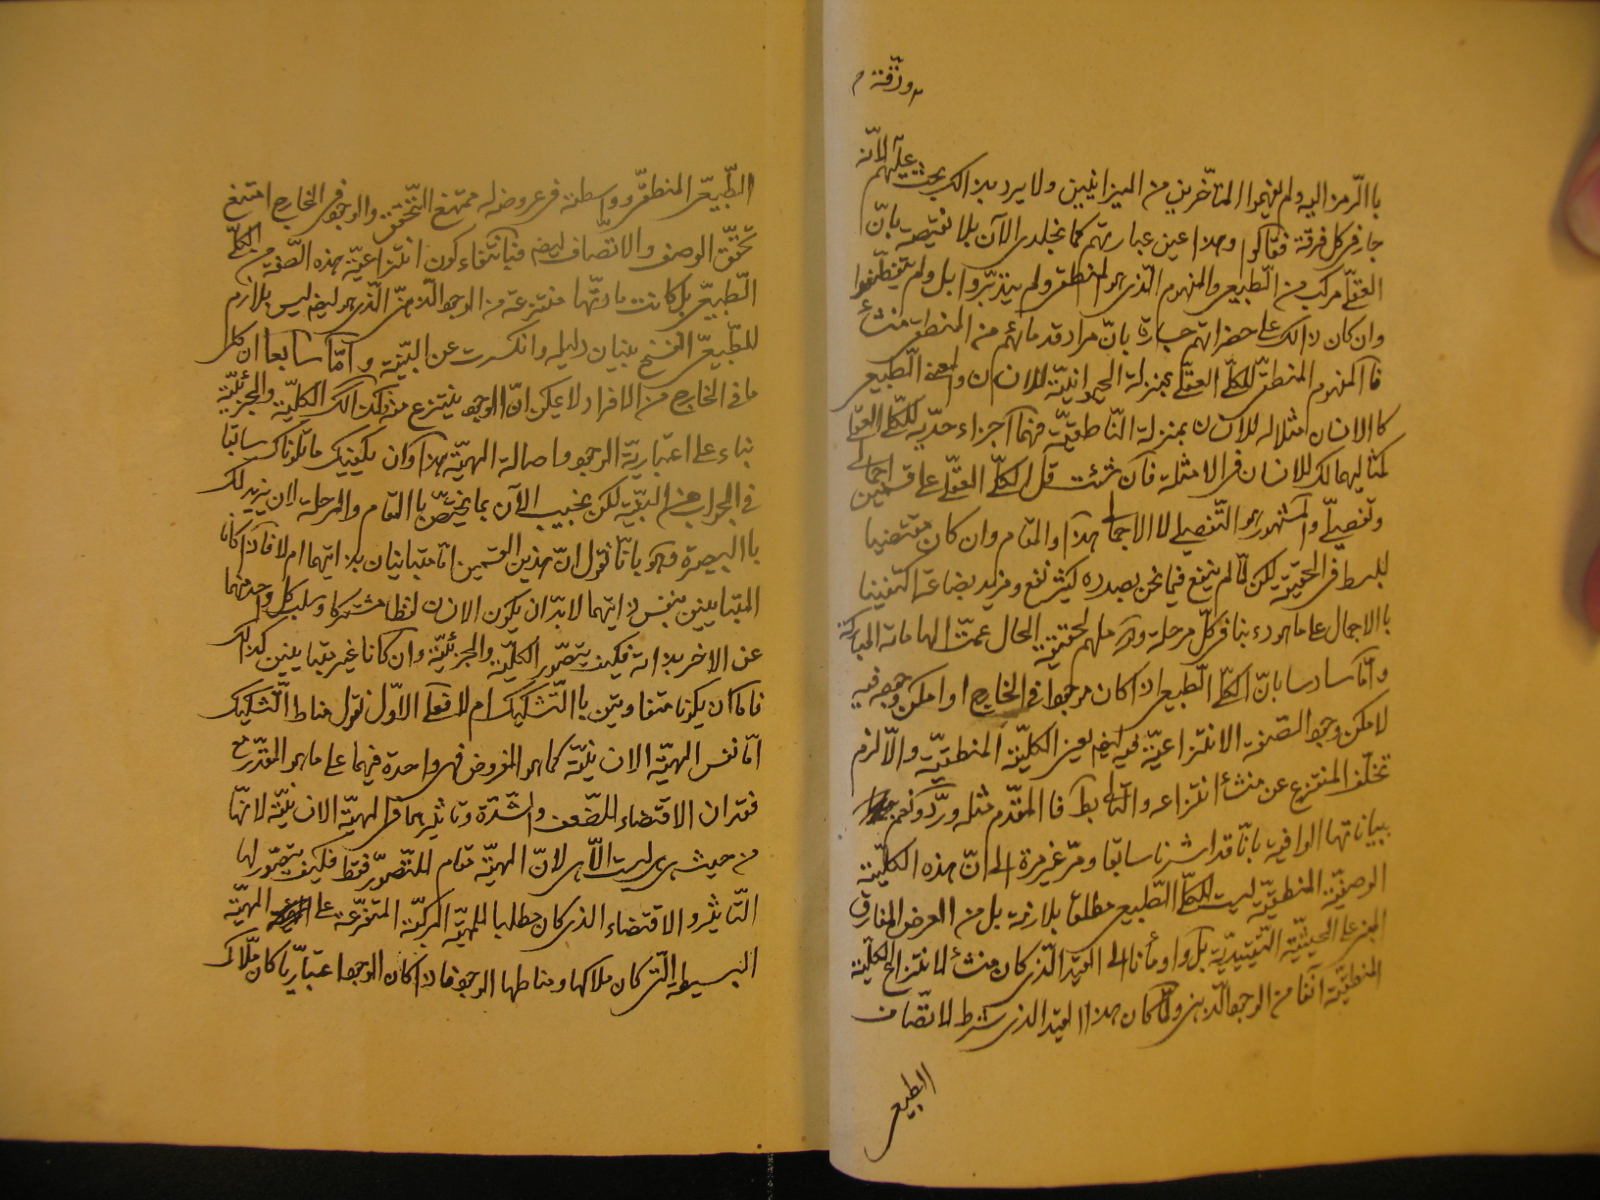 وزقة م
باالرمز اليه ولم يفهموا المتأخرين من الميزانيين ولا يرد بذالك بحث عليهم لانّه
جار فى كل فرقة فقالوا وهذا عين عبارتهم كما نجلدى الآن بلا نقيصة بانّ
العقلّى مركب من الطّبيعى والمفهوم الّذى هو المنطقى ولم يتدبّروا بل ولم يتفطّنوا
وان كان ذالك على حضراتهم جسارة بانّ مراد قدمائهم من المنطقى منشأ
فا المفهوم المنطقى للكلّى العقلى بمنزلة الحيوانيّة للانسان والمعنى الطّبيعى
كا الانسان مثلا له للانسان بمنزلة النّاطقيّة فهما اجزاء حدّية للكلّى العقلى
كمثاليهما لك للانسان فى الامثلة فان شئت قل الكلّى العقلّى على قسمين اجمالى
وتفصيلّى والمشهور هو التّفصيلى لا الاجمالى هذا والمقام وان كان مقتضيا
للبسط فى الحقيقة لكن لمّا لم ينفع فيما نحن بصدده كثير نفع ومزيد بضاعة اكتفينا
باالاجمال على ما هو دءبنا فى كلّ مرحلة والله ملهم لحقيقة الحال عمّت الهاماته المباركة
وامّا سادسا بانّ الكلّى الطّبيعى اذا كان موجودا فى الخارج او امكن وجوده فيه
لامكن وجود الصّفة الانتزاعيّة فيه ايضا يعنى الكليّة المنطقيّة والّا لزم
تخلّف المنتزع عن منشأ انتزاعه والتّالى بط فا المقدّم مثله وردّ ونعم
ببياناتها الوافية بانّا قد اشرنا سابقا ومرّ غيرمرة الى انّ هذه الكليّة
الوصفيّة المنطقيّة ليست للكلّى الطّبيعى مطلقا بلازمة بل من العرض المفارق
المبنى على الحيثيّة التّقييديّة بل واومأنا الى القيد الّذى كان منشأ لانتزاع الكليّة
المنطقيّة آنفا من الوجود الّذهنى ولمّا كان هذا القيد الذى شرط لاتّصاف
الطبيعى
الطّبيعّى المنطقى وواسطة فى عروضه له ممتنع التّحقق والوجود فى الخارج امتنع
تحقّق الوصف والاتّصاف ايضا فبانتفاء كون انتزاعيّة هذه الصّفة من الكلّى
الطّبيعّى بل كانت مادتّها منتزعة من الوجود الذهنّى الّذى هو ايضا ليس بلازم
للطّبيعّى انفسخ بنيان دليله وانكسرت عن البيّنة وامّا سابعا ان كلّ
ما فى الخارج من الافراد لا يمكن انّ الوجود ينتزع منه وكذا لك الكليّة والجزئيّة
بناء على اعتباريّة الوجود واصالة المهيّة هذا وان يكفيك ما تلوناك سابقا
فى الجواب عن البقيّة لكن نجيب الآن بما يختصّ باالمقام والمرحلة لان يزيد لك
باالبصيرة وهو بانّا نقول انّ هذين القسمين امّا متباينان بذاتيهما ام لا فاذا كانا
المتباينين بنفس ذاتيهما لابدّ ان يكون الانسان لفظا مشتركا وسلب كلّ واحد منهما
عن الاخر بذاته فكيف يتصّور الكليّة والجزئيّة وان كانا غير متباينين كذالك
فامّا ان يكونا متفاوتين باالتّشكيك ام لا فعلى الاوّل نقول مناط التّشكيك
امّا نفس المهيّة الانسانيّة كما هو المفروض فهى واحدة فيهما على ما هو المقدّر
فقد ان الاقتضاء للضّعف والشدّة وتاثيرهما فى المهيّة الانسانيّة لانّها
من حيث هى ليست الّا هى لانّ المهيّة تمام المتصّور فقط فكيف يتصّور لها
التّاثير والاقتضاء الذى كان مطلبا للمهيّة المركبّة المتفرّعة على المهيّة
البسيطة الّتى كان ملاكها ومناطها الوجود فاذا كان الوجود اعتباريّا كان ملّاك